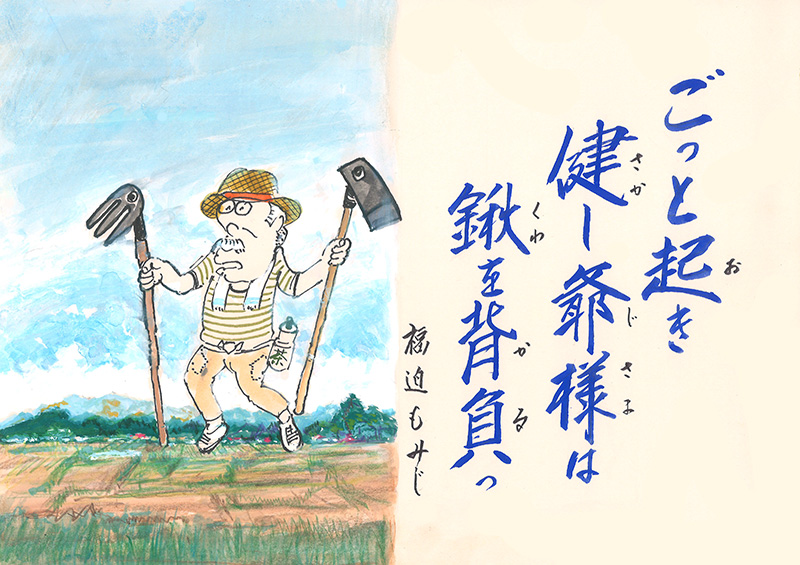 ごっと起き
健しー爺様は
鍬を背負っ
福迫もみじ
お
さか
じさま
くわ
かる
茶